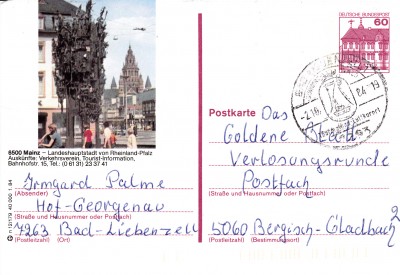 DEUTSCHE BUNDESPOST
60
84-19
-2.10.
6500 Mainz – Landeshauptstadt von Rheinland-Pfalz
Auskünfte: Verkehrsverein, Tourist-Information,
Bahnhofstr. 15, Tel.: (0 61 31) 23 37 41
Irmgard Palme
(Absender)
Hof-Georgenau
(Straße und Hausnummer oder Postfach)
7263 Bad-Liebenzell
(Postleitzahl) (Ort)
Postkarte
Das
Goldene Blatt
Verlosungsrunde
Postfach
(Straße und Hausnummer oder Postfach)
5060 Bergisch-Gladbach 2
(Postleitzahl) (Bestimmungsort)